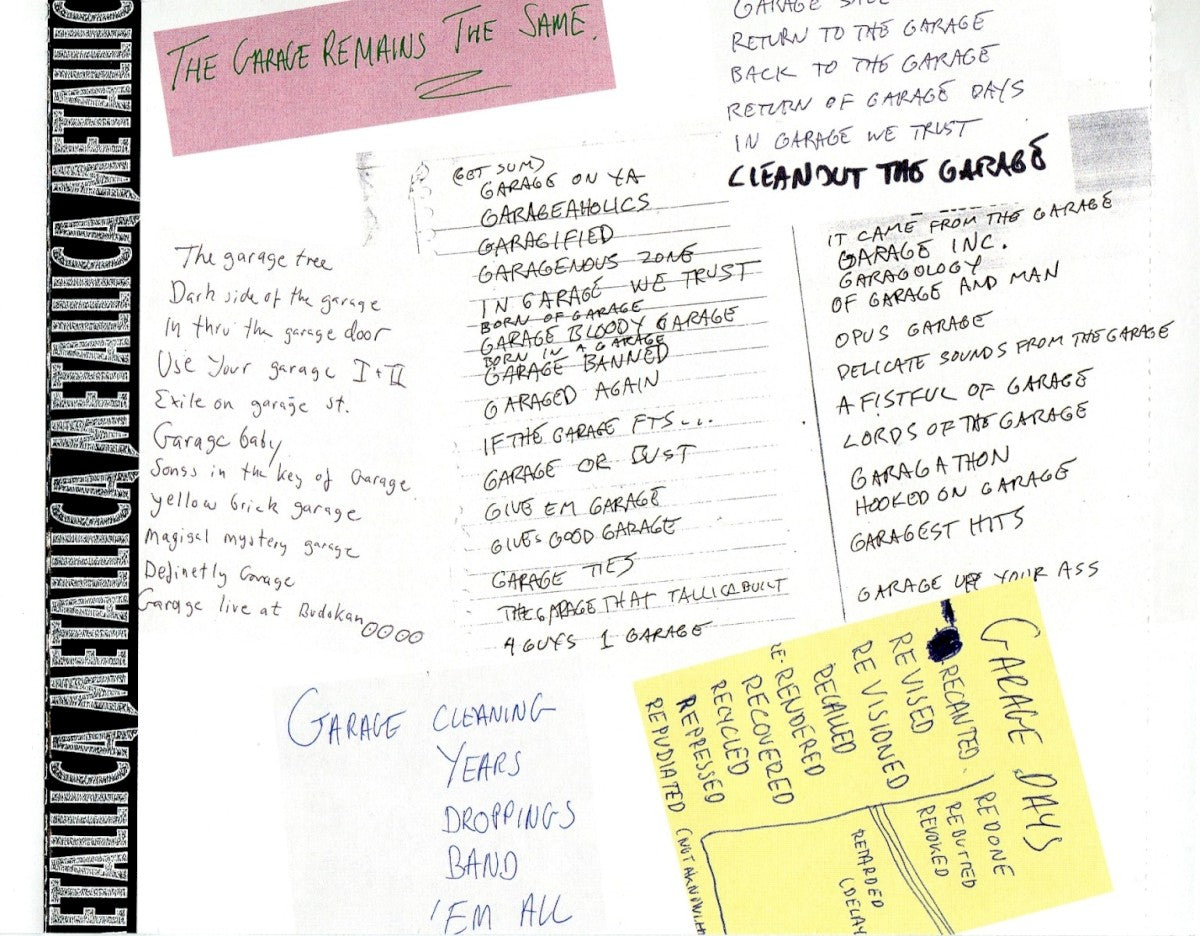 METALLICA METALLICA METALLICA METALLICA
THE GARAGE REMAINS THE SAME.
GARAGE SALE
RETURN TO THE GARAGE
BACK TO THE GARAGE
RETURN OF GARAGE DAYS
IN GARAGE WE TRUST
CLEANOUT THE GARAGE
The garage tree
Dark side of the garage
In thru the garage door
Use Your garage I + II
Exile on garage st.
Garage baby
Songs in the key of Garage
yellow brick garage
Magical mystery garage
Definetly Garage
Garage live at Budokan
(GET SUM)
GARAGE ON YA
GARAGEAHOLICS
GARAGIFIED
GARAGENOUS ZONE
IN GARAGE WE TRUST
BORN OF GARAGE
GARAGE BLOODY GARAGE
BORN IN A GARAGE
GARAGE BANNED
GARAGED AGAIN
IF THE GARAGE FTS...
GARAGE OR BUST
GIVE EM GARAGE
GIVES GOOD GARAGE
GARAGE TIES
THE GARAGE THAT TALLICA BUILT
4 GUYS 1 GARAGE
IT CAME FROM THE GARAGE
GARAGE INC.
GARAGOLOGY
OF GARAGE AND MAN
OPUS GARAGE
DELICATE SOUNDS FROM THE GARAGE
A FISTFUL OF GARAGE
LORDS OF THE GARAGE
GARAGATHON
HOOKED ON GARAGE
GARAGEST HITS
GARAGE UP YOUR ASS
GARAGE CLEANING
YEARS
DROPPINGS
BAND
'EM ALL
GARAGE DAYS
RECANTED.
REVISED
REVISIONED
RECALLED
RE-RENDERED
RECOVERED
RECYCLED
REPRESSED
REPUDIATED (NOT AKNOWL
REDONE
REBUTTED
REVOKED
RETARDED
(DELAY